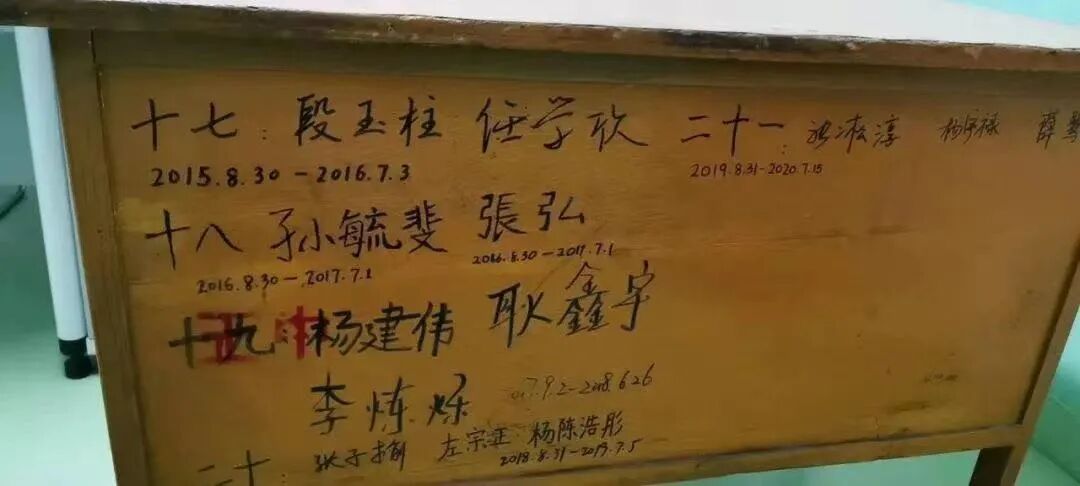 十七：段玉柱 任学欣
2015.8.30－2016.7.3
十八 孙毓斐 張弘
2016.8.30－2017.7.1 2016.8.30－2017.7.1
十九 杨建伟 耿鑫宇
李炼烁 2017.9.2－2018.6.26
二十：张子 左宗正 杨陈浩彤
2018.8.31－2019.7.5
二十一： 淳 杨宇禄 薛
2019.8.31－2020.7.15